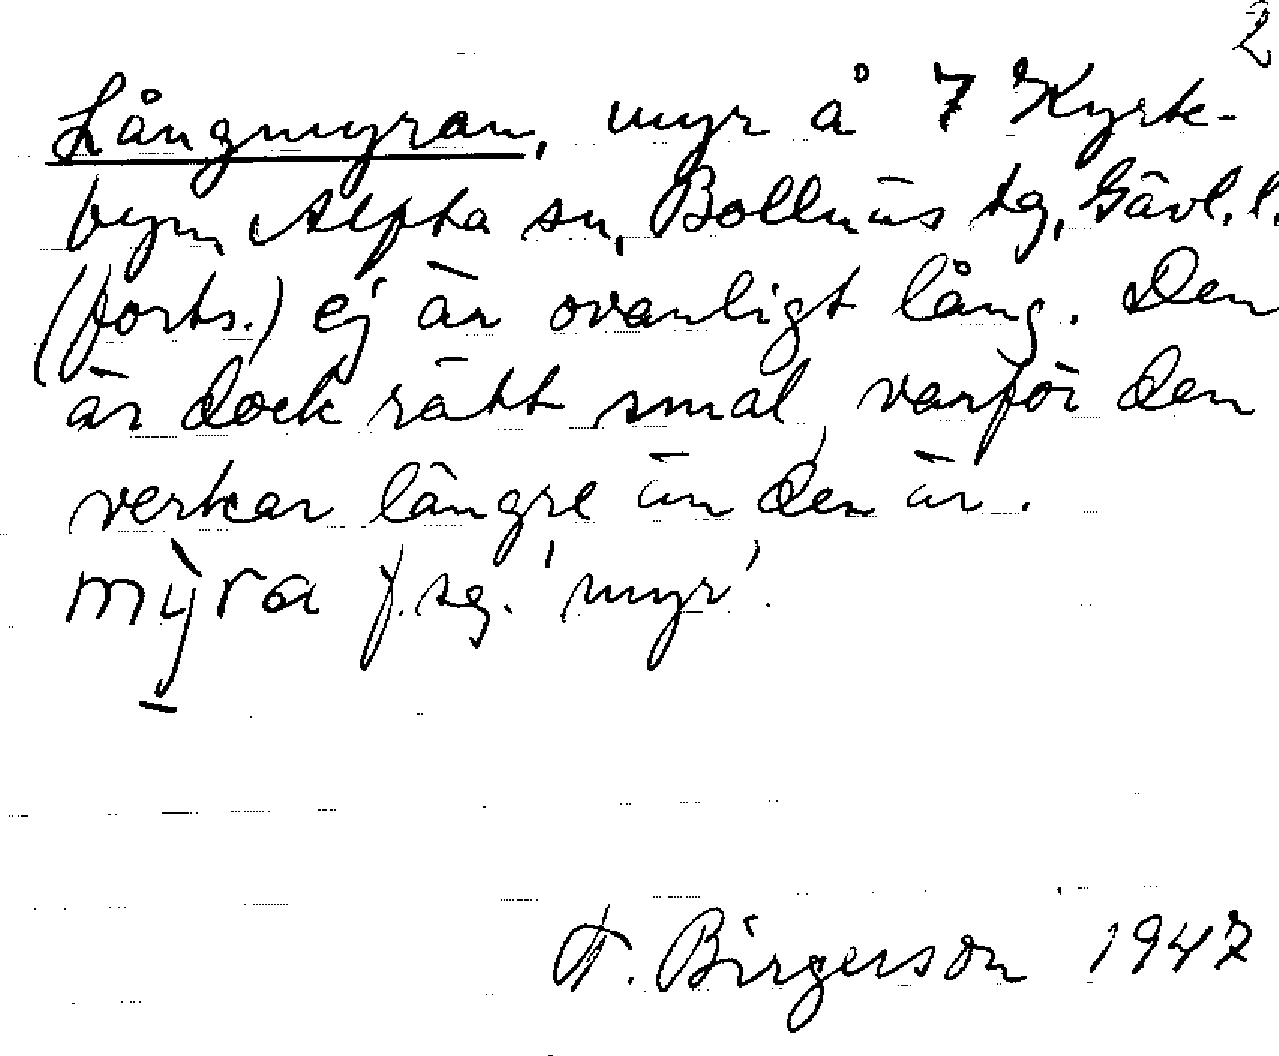 2
Långmyran, myr å 7 Kyrk-
byn, Alfta sn, Bollnäs tg, Gävl. l.
(forts.) ej är ovanligt lång. Den
är dock rätt smal, varför den
verkar längre än den är.
mỳra f.sg. 'myr'.
F. Birgerson 1947